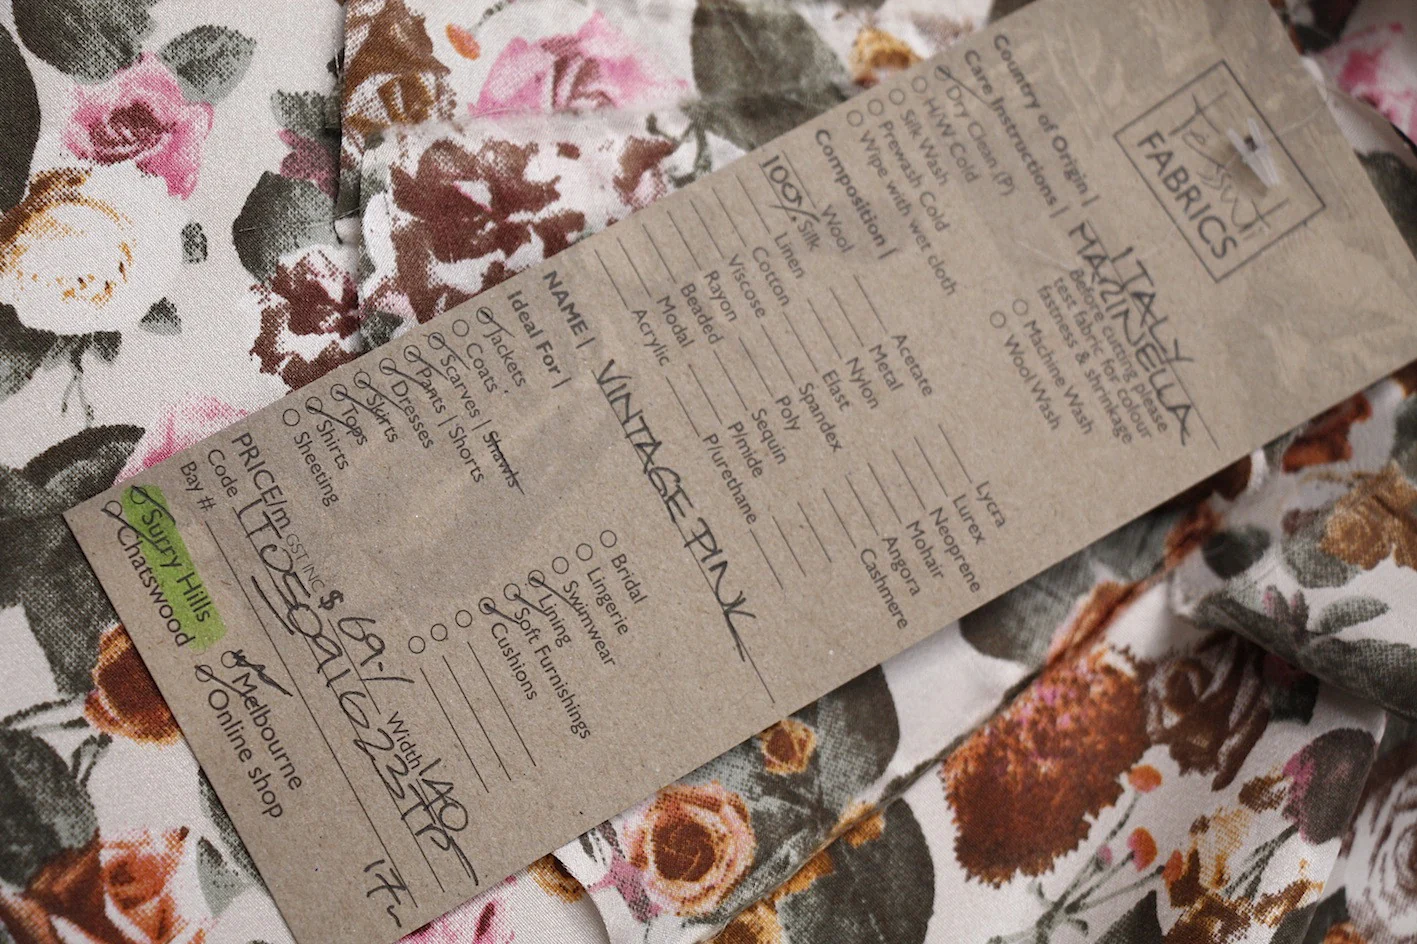 Tessuti
FABRICS
Country of Origin | ITALY
Care Instructions | MARINELLA
Dry Clean (P)
H/W Cold
Silk Wash
Prewash Cold
Wipe with wet cloth
Before cutting please
test fabric for colour
fastness & shrinkage
Machine Wash
Wool Wash
Composition |
Wool
100% Silk
Linen
Cotton
Viscose
Rayon
Beaded
Modal
Acrylic
Acetate
Metal
Nylon
Elast
Spandex
Poly
Sequin
P/nide
P/urethane
Lycra
Lurex
Neoprene
Mohair
Angora
Cashmere
NAME | VINTAGE PINK
Ideal For |
Jackets
Coats
Scarves | Shawls
Pants | Shorts
Dresses
Skirts
Tops
Shirts
Sheeting
Bridal
Lingerie
Swimwear
Lining
Soft Furnishings
Cushions
PRICE/m GST INC $ 69.-/ Width 140
Code
Bay #:
Surry Hills
Chatswood
Melbourne
Online shop